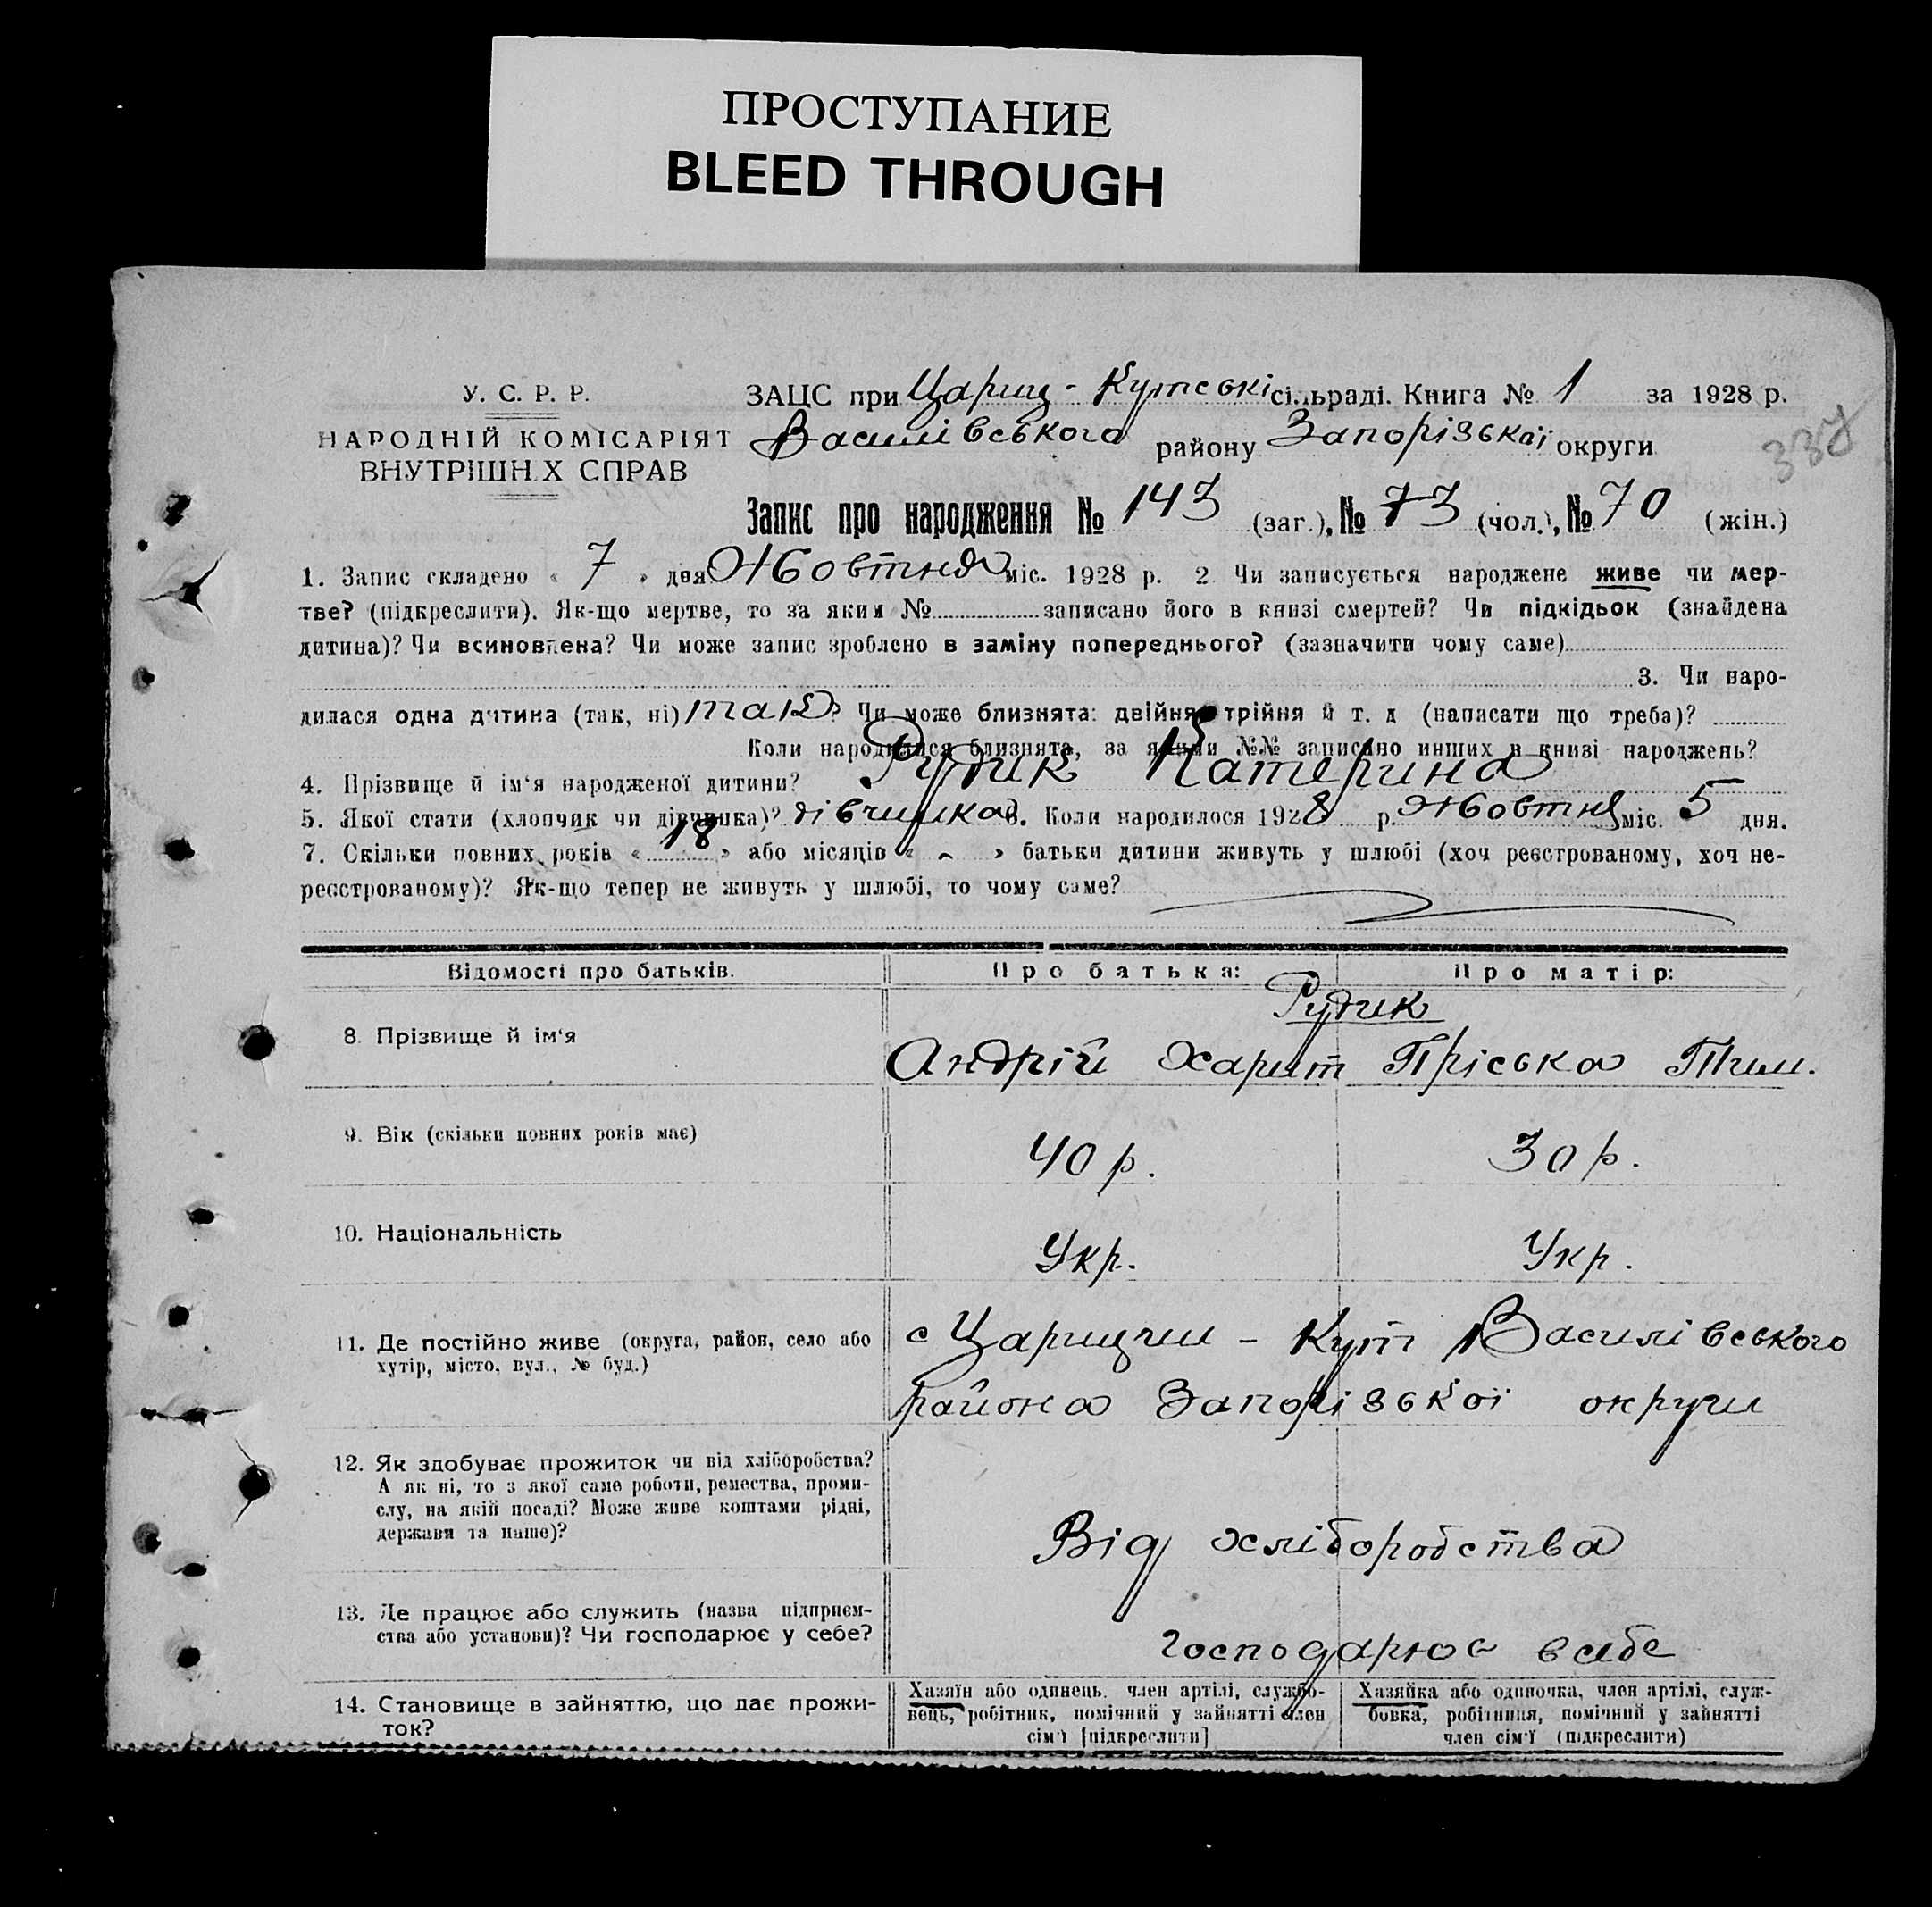 ПРОСТУПАНИЕ
BLEED THROUGH
У. С. Р. Р.
НАРОДНІЙ КОМІСАРІЯТ
ВНУТРІШНІХ СПРАВ
ЗАЦС при Цариц-Кутські сільраді. Книга № 1 за 1928 р.
Василівського району Запорізької округи
337
Запис про народження № 143 (заг.), № 73 (чол.), № 70 (жін.)
1. Запис складено « 7 » дня Жовтня міс. 1928 р. 2. Чи записується народжене живе чи мер-
тве? (підкреслити). Як-що мертве, то за яким № записано його в книзі смертей? Чи підкідьок (знайдена
дитина)? Чи всиновлена? Чи може запис зроблено в заміну попереднього? (зазначити чому саме)
3. Чи наро-
дилася одна дитина (так, ні) так? Чи може близнята: двійня, трійня й т. д (написати що треба)?
Коли народилися близнята, за якими №№ записано инших в книзі народжень?
4. Прізвище й ім'я народженої дитини? Рудик Катерина
5. Якої стати (хлопчик чи дівчинка)? дівчинка 6. Коли народилося 1928 р. Жовтня міс. 5 дня.
7. Скільки повних років « 18 » або місяців « - » батьки дитини живуть у шлюбі (хоч реєстрованому, хоч не-
реєстрованому)? Як-що тепер не живуть у шлюбі, то чому саме?
Відомості про батьків. Про батька: Про матір:
Рудик
8. Прізвище й ім'я Андрій Харит Пріська Тим.
9. Вік (скільки повних років має) 40 р. 30 р.
10. Національність Укр. Укр.
11. Де постійно живе (округа, район, село або
хутір, місто, вул., № буд.)
с Царицин - Кут Василівського
района Запорізької округи
12. Як здобуває прожиток чи від хліборобства?
А як ні, то з якої саме роботи, ремества, проми-
слу, на якій посаді? Може живе коштами рідні,
держави та инше)?
Від хліборобства
13. Де працює або служить (назва підприєм-
ства або установи)? Чи господарює у себе?
господарює в себе
14. Становище в зайняттю, що дає прожи-
ток?
Хазяїн або одинець, член артілі, службо-
вець, робітник, помічний у зайнятті член
сім'ї [підкреслити]
Хазяйка або одиночка, член артілі, служ-
бовка, робітниця, помічний у зайнятті
член сім'ї (підкреслити)